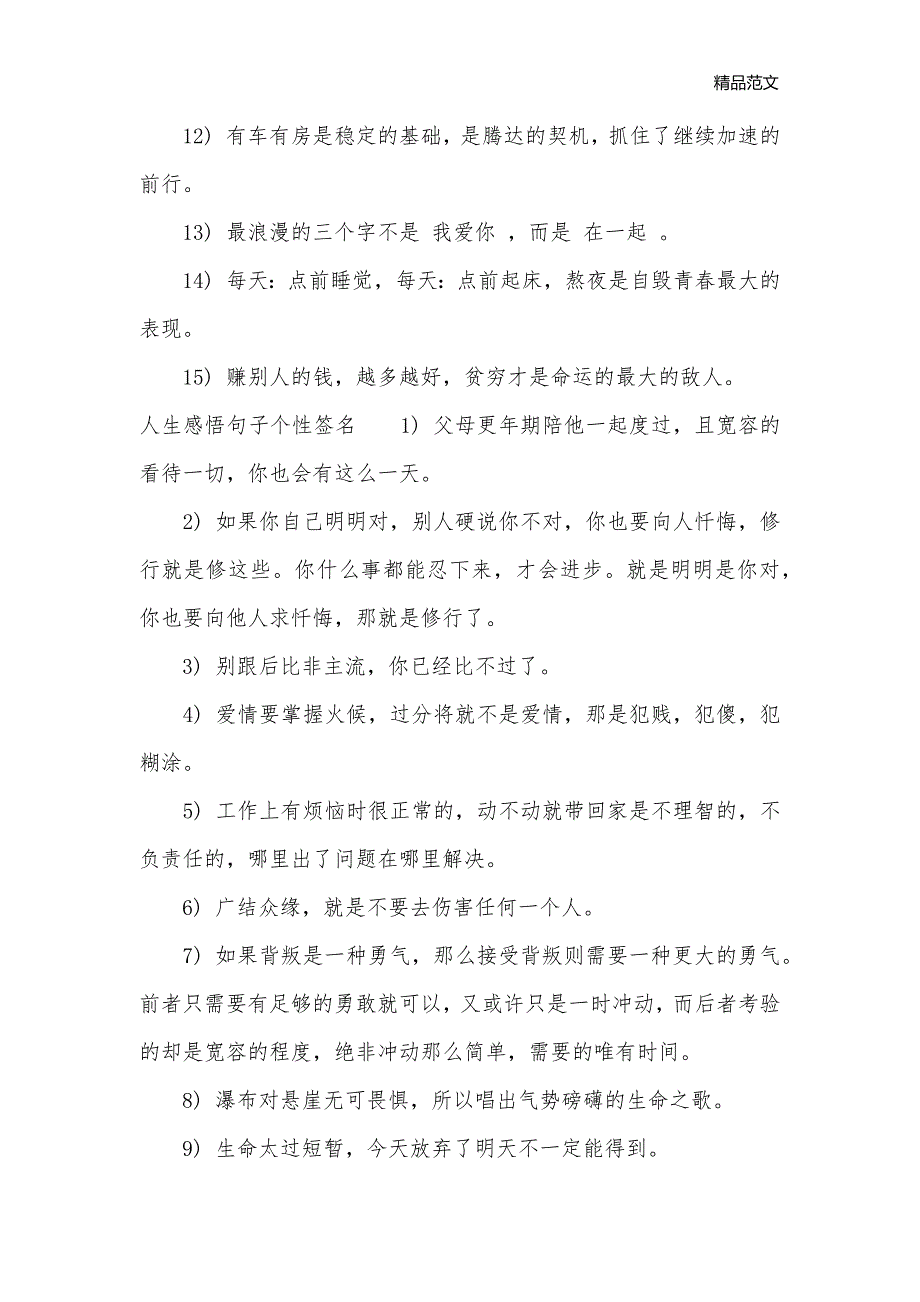 精品范文
12) 有车有房是稳定的基础，是腾达的契机，抓住了继续加速的
前行。
13) 最浪漫的三个字不是 我爱你 ，而是 在一起 。
14) 每天：点前睡觉，每天：点前起床，熬夜是自毁青春最大的
表现。
15) 赚别人的钱，越多越好，贫穷才是命运的最大的敌人。
人生感悟句子个性签名　　1) 父母更年期陪他一起度过，且宽容的
看待一切，你也会有这么一天。
2) 如果你自己明明对，别人硬说你不对，你也要向人忏悔，修
行就是修这些。你什么事都能忍下来，才会进步。就是明明是你对，
你也要向他人求忏悔，那就是修行了。
3) 别跟后比非主流，你已经比不过了。
4) 爱情要掌握火候，过分将就不是爱情，那是犯贱，犯傻，犯
糊涂。
5) 工作上有烦恼时很正常的，动不动就带回家是不理智的，不
负责任的，哪里出了问题在哪里解决。
6) 广结众缘，就是不要去伤害任何一个人。
7) 如果背叛是一种勇气，那么接受背叛则需要一种更大的勇气。
前者只需要有足够的勇敢就可以，又或许只是一时冲动，而后者考验
的却是宽容的程度，绝非冲动那么简单，需要的唯有时间。
8) 瀑布对悬崖无可畏惧，所以唱出气势磅礴的生命之歌。
9) 生命太过短暂，今天放弃了明天不一定能得到。